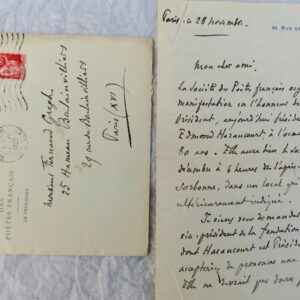 Monsieur Fernand Gregh
25 Hameau Boulainvilliers
29 rue de Boulainvilliers
Paris (XVI)
DES
POETES FRANÇAIS
LE PRÉSIDENT
Paris, le 28 novembre
Mon cher ami,
La Société des Poëts français org
manifestation en l'honneur de
Président, aujourd'hui présid
Edmond Haraucourt, à l'occa
80 ans. Elle aura lieu le sa
décembre à 6 heures de l'après
Sorbonne, dans un local qu
ultérieurement indiqué.
Je viens vous demander
président de la Fondation
dont Haraucourt est Présid
accepteriez de prononcer une
Elle ne devrait pas durer p